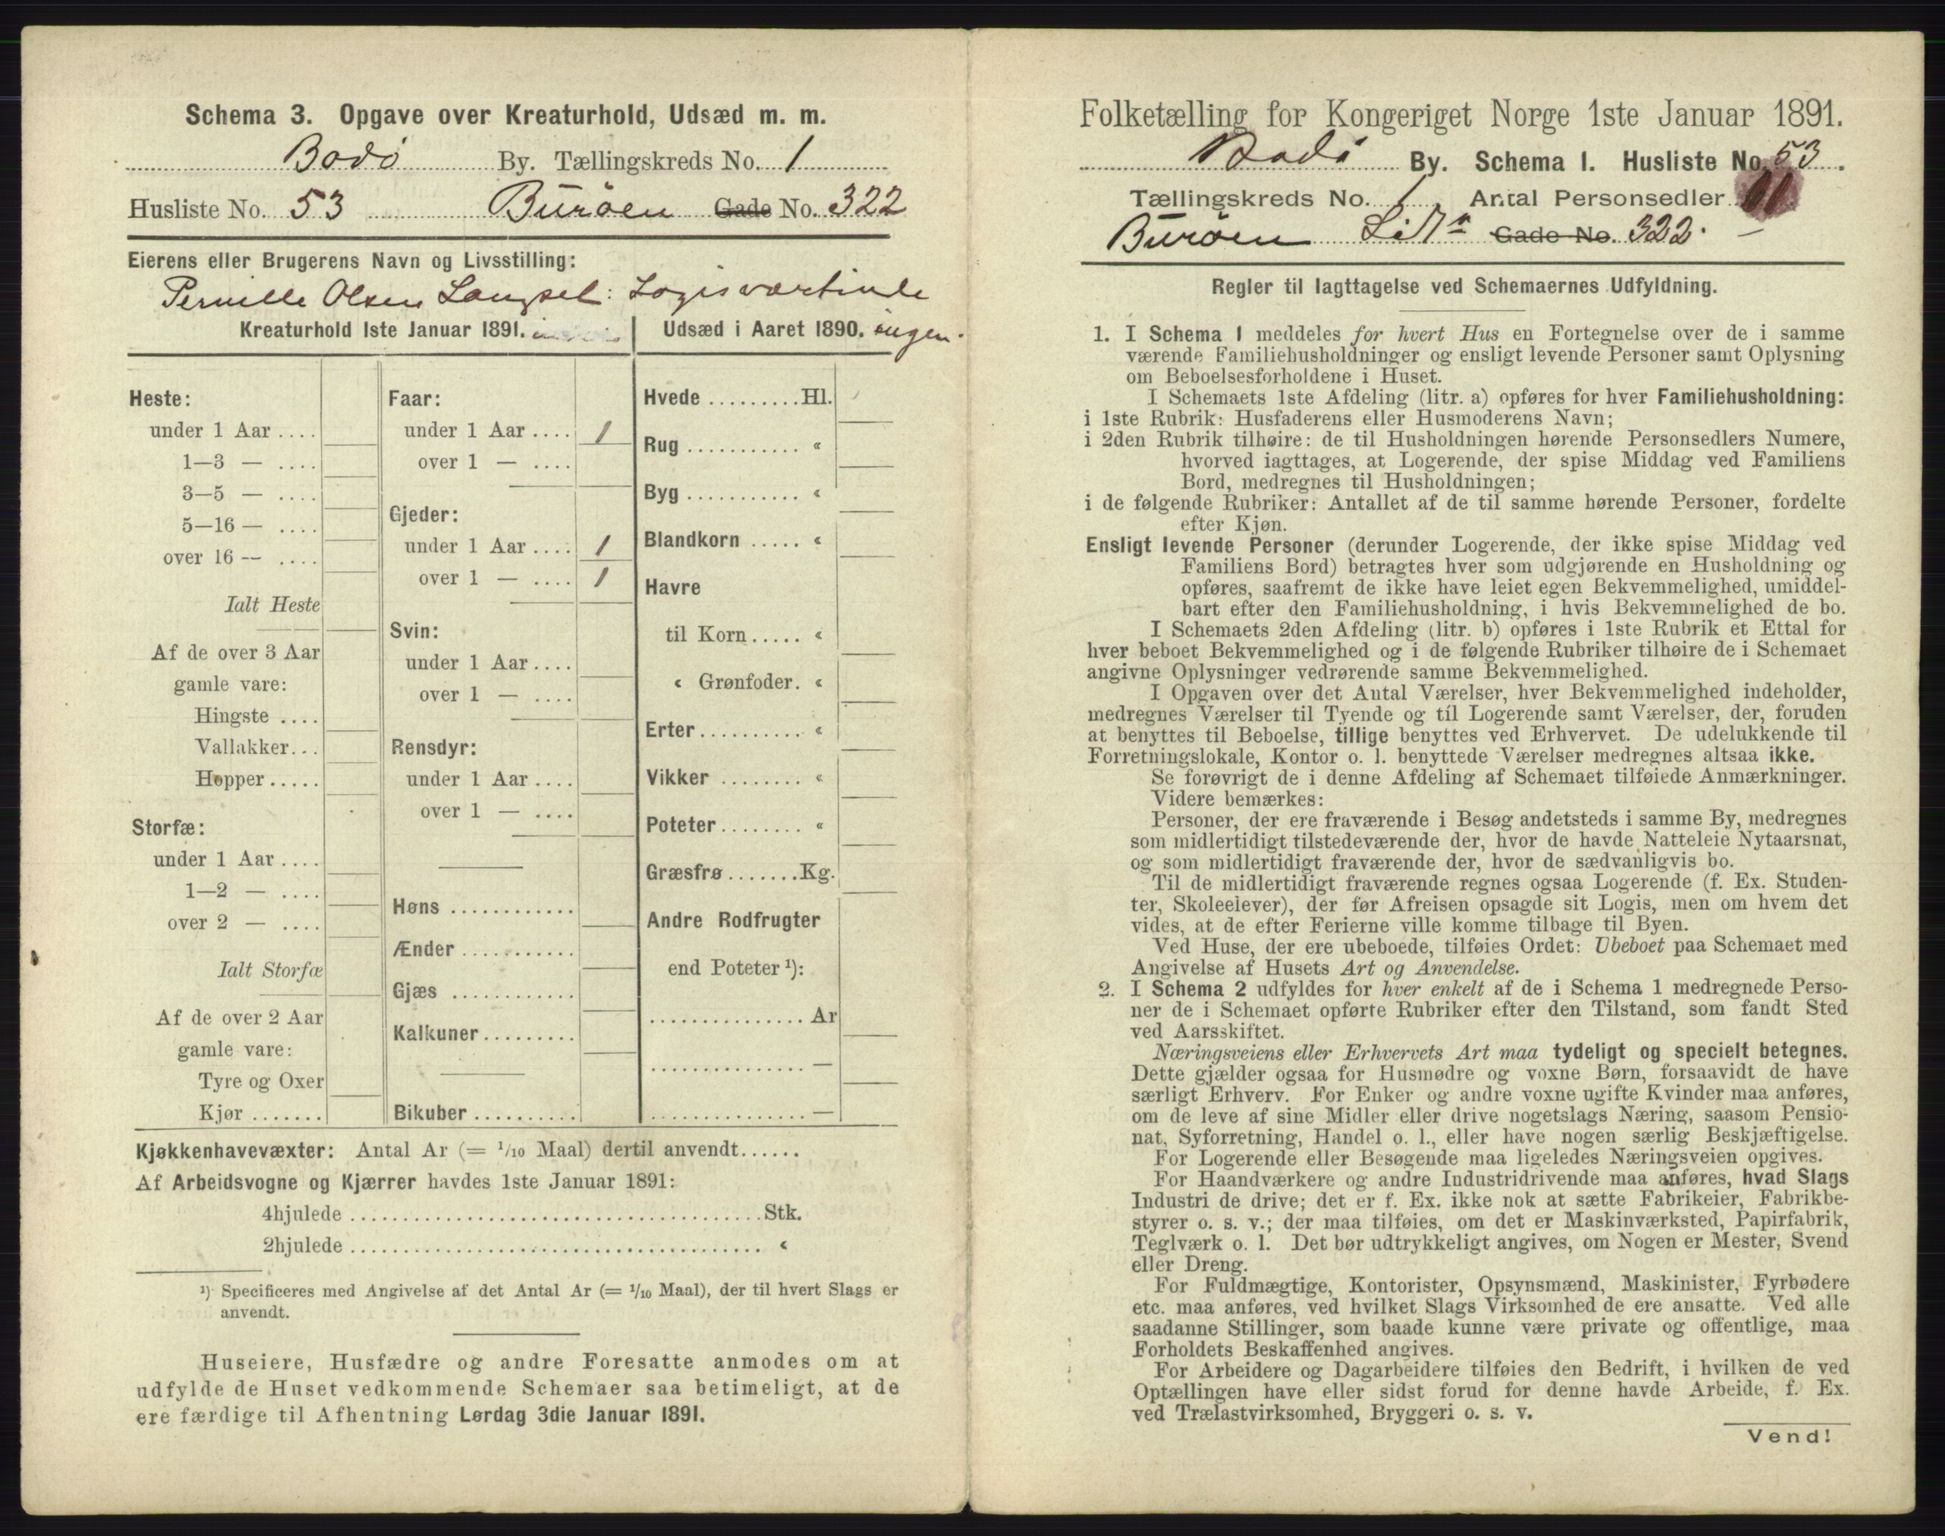 Schema 3. Opgave over Kreaturhold, Udsæd m. m.
Bodø By. Tællingskreds No. 1
Husliste No. 53 Burøen Gade No. 322
Eierens eller Brugerens Navn og Livsstilling:
Pernille Olsen Langset: Logisværtinde
Kreaturhold 1ste Januar 1891.
Heste:
under 1 Aar ....
1—3 — ....
3—5 — ....
5—16 — ....
over 16 — ....
Ialt Heste
Af de over 3 Aar
gamle vare:
Hingste ....
Vallakker...
Hopper.....
Storfæ:
under 1 Aar ....
1—2 — ....
over 2 — ....
Ialt Storfæ
Af de over 2 Aar
gamle vare:
Tyre og Oxer
Kjør .......
Faar:
under 1 Aar .... 1
over 1 — ....
Gjeder:
under 1 Aar .... 1
over 1 — .... 1
Svin:
under 1 Aar ....
over 1 — ....
Rensdyr:
under 1 Aar ....
over 1 — ....
Høns ............
Ænder ............
Gjæs ............
Kalkuner .........
Bikuber ..........
Udsæd i Aaret 1890. ingen.
Hvede .........Hl.
Rug ........... «
Byg ........... «
Blandkorn ..... «
Havre
til Korn ..... «
« Grønfoder. «
Erter.......... «
Vikker ........ «
Poteter ........ «
Græsfrø .......Kg.
Andre Rodfrugter
end Poteter ¹):
............... Ar
............... —
............... —
Kjøkkenhavevæxter: Antal Ar (= 1/10 Maal) dertil anvendt......
Af Arbeidsvogne og Kjærrer havdes 1ste Januar 1891:
4hjulede ........................................Stk.
2hjulede ........................................ «
¹) Specificeres med Angivelse af det Antal Ar (= 1/10 Maal), der til hvert Slags er
anvendt.
Huseiere, Husfædre og andre Foresatte anmodes om at
udfylde de Huset vedkommende Schemaer saa betimeligt, at de
ere færdige til Afhentning Lørdag 3die Januar 1891.
Folketælling for Kongeriget Norge 1ste Januar 1891.
Bodø By. Schema 1. Husliste No. 53.
Tællingskreds No. 1 Antal Personsedler 11
Burøen Gade No. 322.
Regler til Iagttagelse ved Schemaernes Udfyldning.
1. I Schema 1 meddeles for hvert Hus en Fortegnelse over de i samme
værende Familiehusholdninger og ensligt levende Personer samt Oplysning
om Beboelsesforholdene i Huset.
I Schemaets 1ste Afdeling (litr. a) opføres for hver Familiehusholdning:
i 1ste Rubrik: Husfaderens eller Husmoderens Navn;
i 2den Rubrik tilhøire: de til Husholdningen hørende Personsedlers Numere,
hvorved iagttages, at Logerende, der spise Middag ved Familiens
Bord, medregnes til Husholdningen;
i de følgende Rubriker: Antallet af de til samme hørende Personer, fordelte
efter Kjøn.
Ensligt levende Personer (derunder Logerende, der ikke spise Middag ved
Familiens Bord) betragtes hver som udgjørende en Husholdning og
opføres, saafremt de ikke have leiet egen Bekvemmelighed, umiddel-
bart efter den Familiehusholdning, i hvis Bekvemmelighed de bo.
I Schemaets 2den Afdeling (litr. b) opføres i 1ste Rubrik et Ettal for
hver beboet Bekvemmelighed og i de følgende Rubriker tilhøire de i Schemaet
angivne Oplysninger vedrørende samme Bekvemmelighed.
I Opgaven over det Antal Værelser, hver Bekvemmelighed indeholder,
medregnes Værelser til Tyende og til Logerende samt Værelser, der, foruden
at benyttes til Beboelse, tillige benyttes ved Erhvervet. De udelukkende til
Forretningslokale, Kontor o. l. benyttede Værelser medregnes altsaa ikke.
Se forøvrigt de i denne Afdeling af Schemaet tilføiede Anmærkninger.
Videre bemærkes:
Personer, der ere fraværende i Besøg andetsteds i samme By, medregnes
som midlertidigt tilstedeværende der, hvor de havde Natteleie Nytaarsnat,
og som midlertidigt fraværende der, hvor de sædvanligvis bo.
Til de midlertidigt fraværende regnes ogsaa Logerende (f. Ex. Studen-
ter, Skoleelever), der før Afreisen opsagde sit Logis, men om hvem det
vides, at de efter Ferierne ville komme tilbage til Byen.
Ved Huse, der ere ubeboede, tilføies Ordet: Ubeboet paa Schemaet med
Angivelse af Husets Art og Anvendelse.
2. I Schema 2 udfyldes for hver enkelt af de i Schema 1 medregnede Perso-
ner de i Schemaet opførte Rubriker efter den Tilstand, som fandt Sted
ved Aarsskiftet.
Næringsveiens eller Erhvervets Art maa tydeligt og specielt betegnes.
Dette gjælder ogsaa for Husmødre og voxne Børn, forsaavidt de have
særligt Erhverv. For Enker og andre voxne ugifte Kvinder maa anføres,
om de leve af sine Midler eller drive nogetslags Næring, saasom Pensio-
nat, Syforretning, Handel o. l., eller have nogen særlig Beskjæftigelse.
For Logerende eller Besøgende maa ligeledes Næringsveien opgives.
For Haandværkere og andre Industridrivende maa anføres, hvad Slags
Industri de drive; det er f. Ex. ikke nok at sætte Fabrikeier, Fabrikbe-
styrer o. s. v.; der maa tilføies, om det er Maskinværksted, Papirfabrik,
Teglværk o. l. Det bør udtrykkeligt angives, om Nogen er Mester, Svend
eller Dreng.
For Fuldmægtige, Kontorister, Opsynsmænd, Maskinister, Fyrbødere
etc. maa anføres, ved hvilket Slags Virksomhed de ere ansatte. Ved alle
saadanne Stillinger, som baade kunne være private og offentlige, maa
Forholdets Beskaffenhed angives.
For Arbeidere og Dagarbeidere tilføies den Bedrift, i hvilken de ved
Optællingen have eller sidst forud for denne havde Arbeide, f. Ex.
ved Trælastvirksomhed, Bryggeri o. s. v.
Vend!